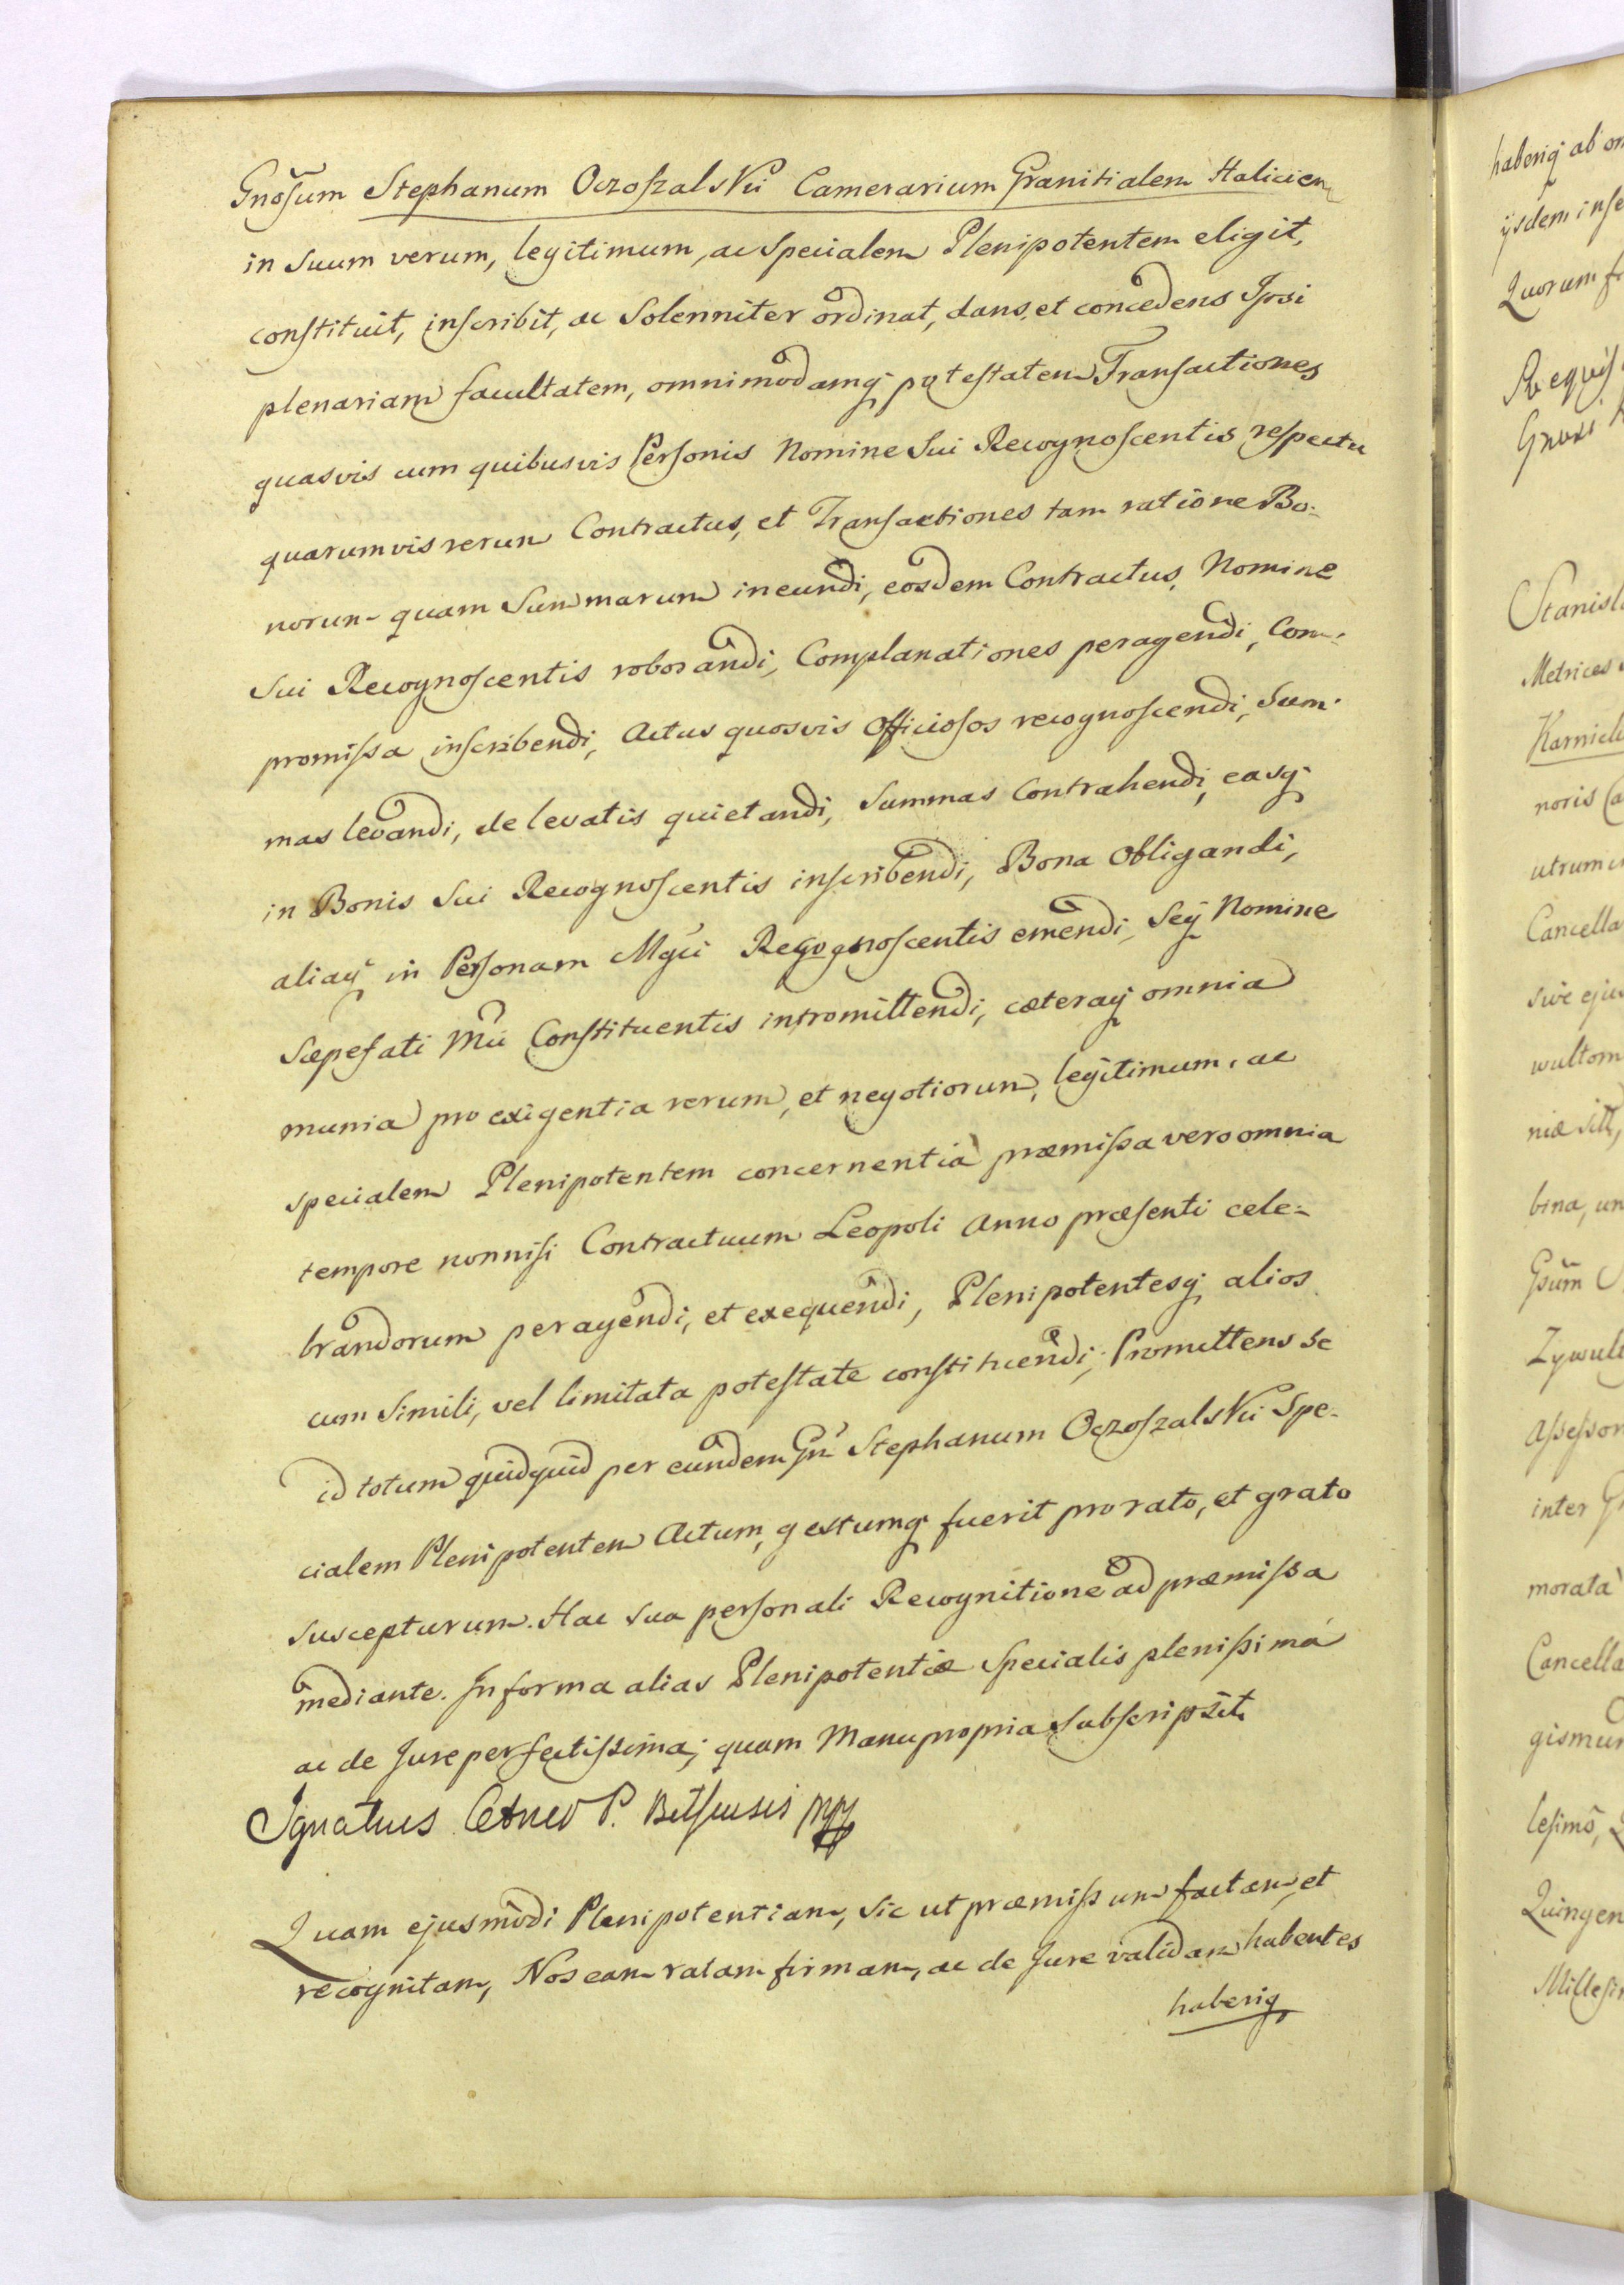 Gnosum Stephanum Oczoszalskii Camerarium Granitialem Halicien
in Suum verum, legitimum, ac specialem Plenipotentem eligit,
constituit, inscribit, ac Solenniter ordinat, dans, et concedens Ipsi
plenariam facultatem, omnimodamq potestatem Transactiones
quasvis cum quibusvis Personis Nomine Sui Recognoscentis respectu
quarumvis rerum Contractus, et Transactiones tam ratione Bo-
norum quam Summarum ineundi, eosdem Contractus, Nomine
Sui Recognoscentis roborandi, Complanationes peragendi, Com-
promissa inscribendi, Actus quosvis Officiosos recognoscendi, Sum-
mas levandi, de levatis quietandi, Summas Contrahendi, easq
in Bonis Sui Recognoscentis inscribendi, Bona Obligandi,
aliaq in Personam Mgci Recognoscentis emendi, Seq Nomine
Sæpefati Mci Constituentis intromittendi, cæteraq omnia
munia pro exigentia rerum, et negotiorum, legitimum, ac
specialem Plenipotentem concernentia præmissa vero omnia
tempore nonnisi Contractuum Leopoli Anno præsenti cele-
brandorum peragendi, et exequendi, Plenipotentesq alios
cum Simili, vel limitata potestate constituendi; Promittens se
id totum quidquid per eundem Gn Stephanum Oczoszalskii Spe-
cialem Plenipotentem Actum, gestumq fuerit pro rato, et grato
suscepturum. Hac sua personali Recognitione ad præmissa
mediante. In forma alias Plenipotentiæ Specialis plenissima
ac de Jure perfectissima; quam Manu propria Subscripsit.
Ignatius Cetner P. mpp
Quam ejusmodi Plenipotentiam, Sic ut præmissum factam, et
recognitam, Nos eam ratam firmam, ac de Jure validam habentes
haberiq
haberiq ab
ijsdem
Quorum
Metrices
noris
Cancella
sive
bina,
inter
morata
Cancella
lesimo,